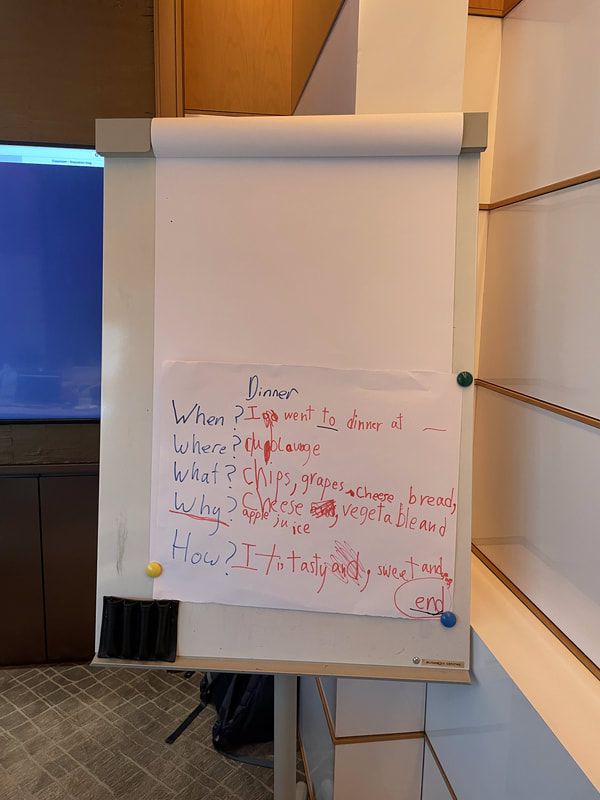 Dinner
When? I went to dinner at __
Where? club lounge
What? chips, grapes, cheese bread,
Why? Cheese, vegetable and
apple juice
How? It is tasty, sweet and
end